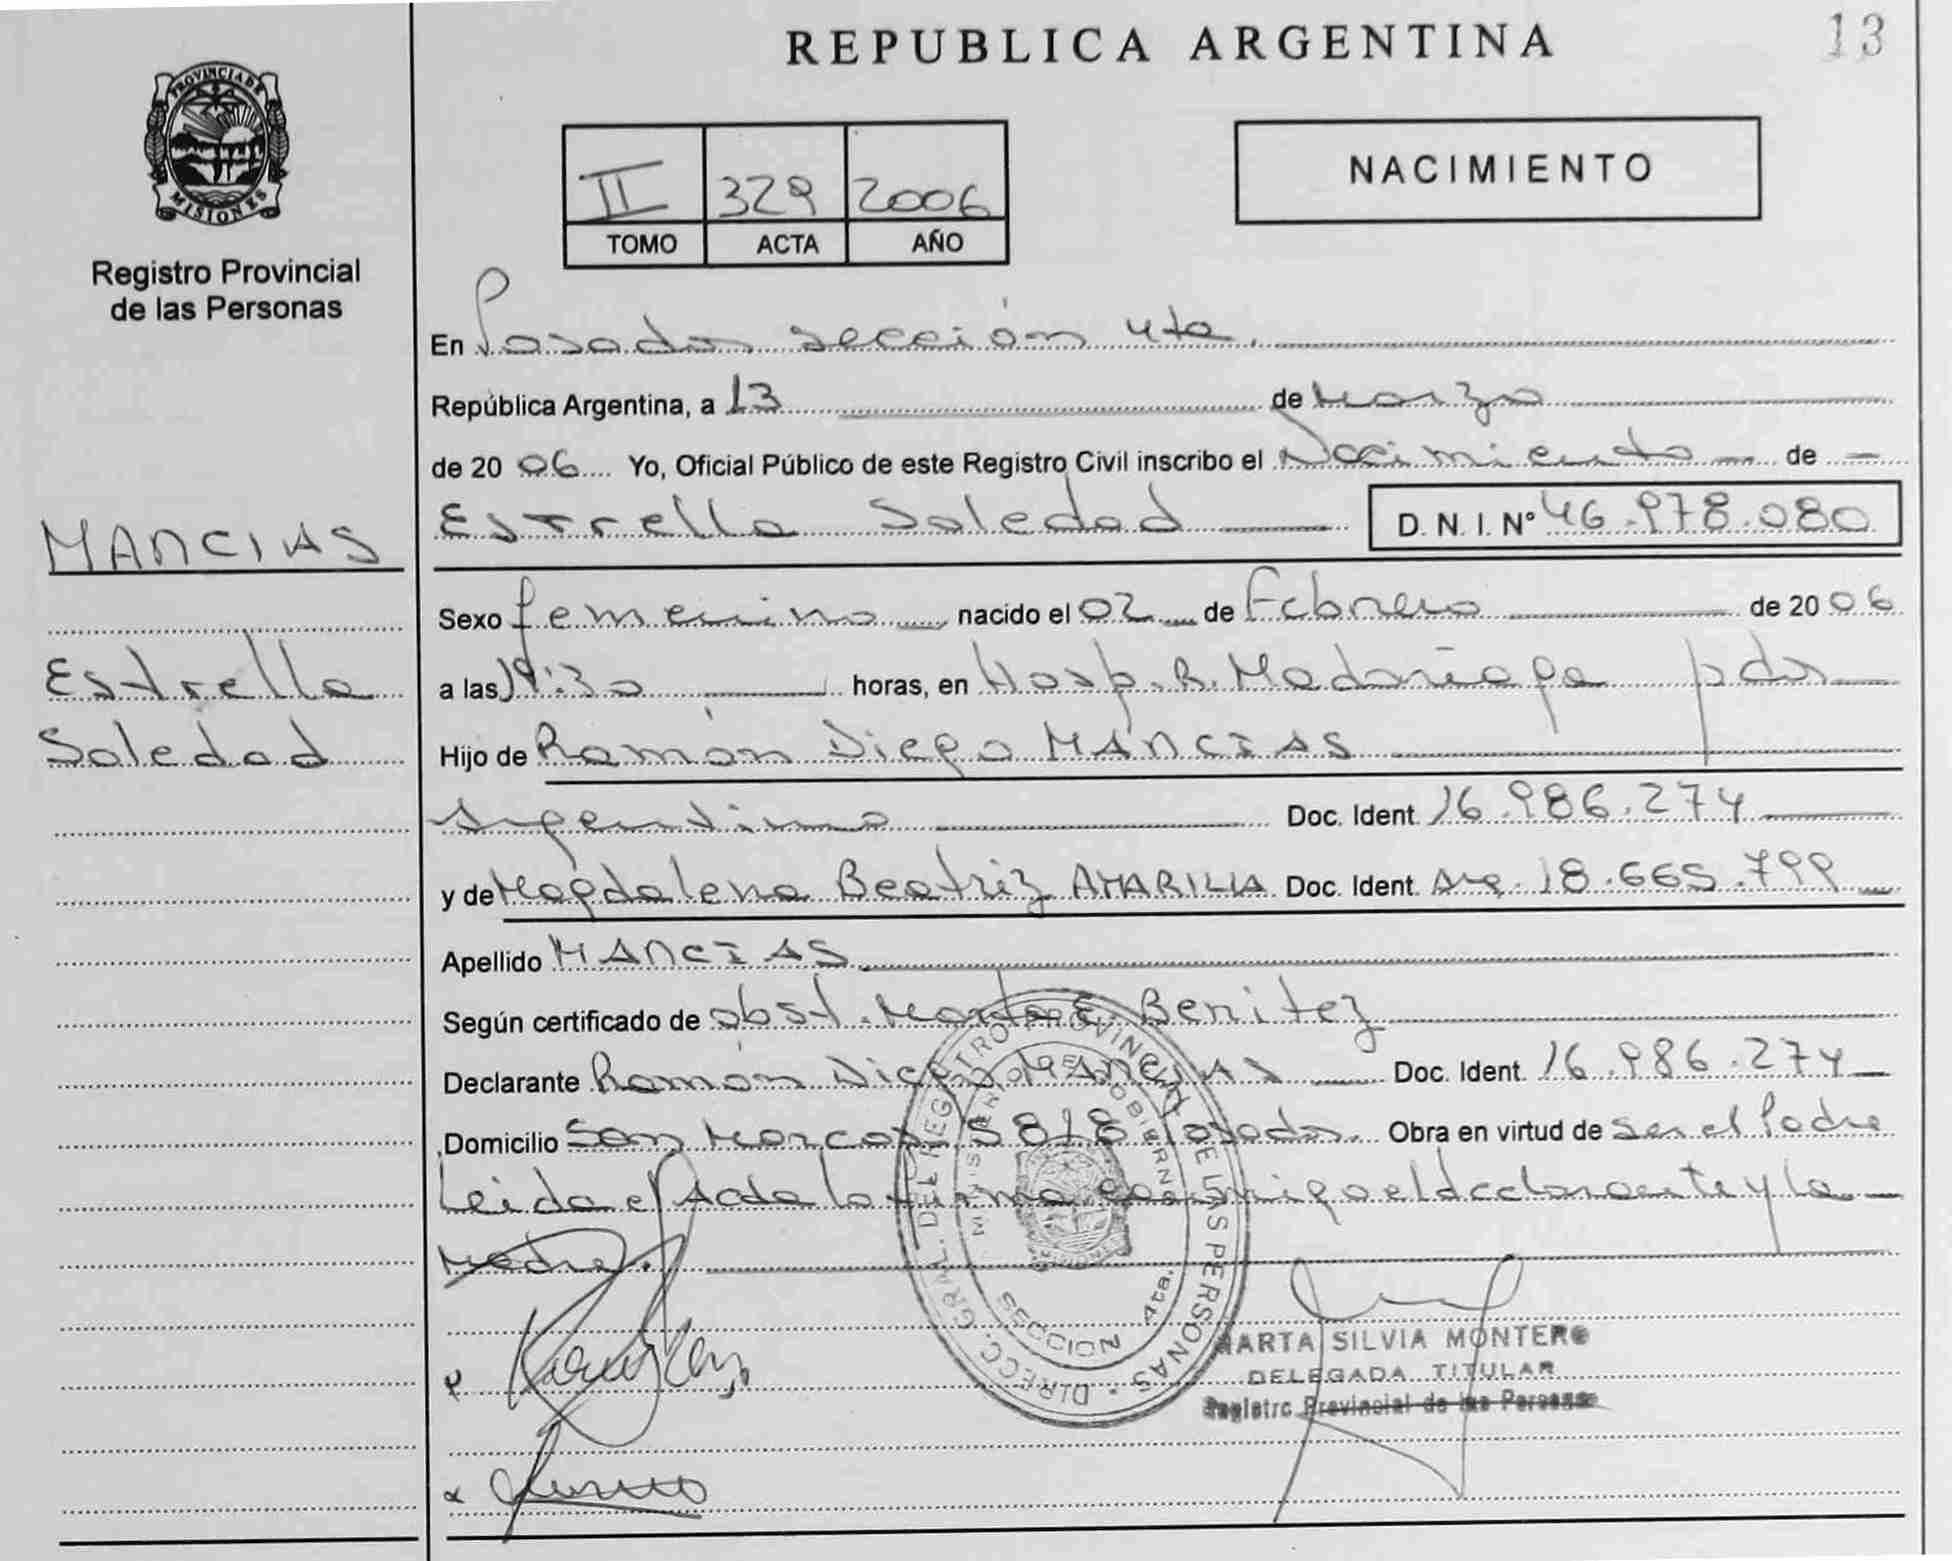 REPUBLICA ARGENTINA
13
PROVINCIA DE
MISIONES
Registro Provincial
de las Personas
II 329 2006
TOMO ACTA AÑO
NACIMIENTO
En Posadas sección 4ta.
República Argentina, a 13 de Marzo
de 2006 Yo, Oficial Público de este Registro Civil inscribo el Nacimiento de
MANCIAS
Estrella Soledad D. N. I. N° 46.978.080
Sexo femenino nacido el 02 de Febrero de 2006
Estrella
a las 19:30 horas, en Hosp. R. Madariaga pdas
Soledad
Hijo de Ramón Diego MANCIAS
argentino Doc. Ident. 16.986.274
y de Magdalena Beatriz AMARILLA Doc. Ident. Arg. 18.665.799
Apellido MANCIAS
Según certificado de obst. Marta E. Benitez
Declarante Ramón Diego MANCIAS Doc. Ident. 16.986.274
Domicilio San Marcos 5818 Posadas. Obra en virtud de ser el Padre
Leida el Acta la firma conmigo el declarante y la
Madre.
DIRECC. GRAL. DEL REGISTRO PROVINCIAL DE LAS PERSONAS
MINISTERIO DE GOBIERNO
SECCION 4ta.
MARTA SILVIA MONTERO
DELEGADA TITULAR
Registro Provincial de las Personas